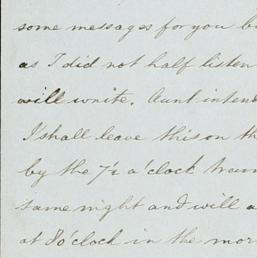 some messages for you b
as I did not half listen
will write. Aunt inten
I shall leave this on th
by the 7½ o'clock train
same night and will a
at 8 o'clock in the mor